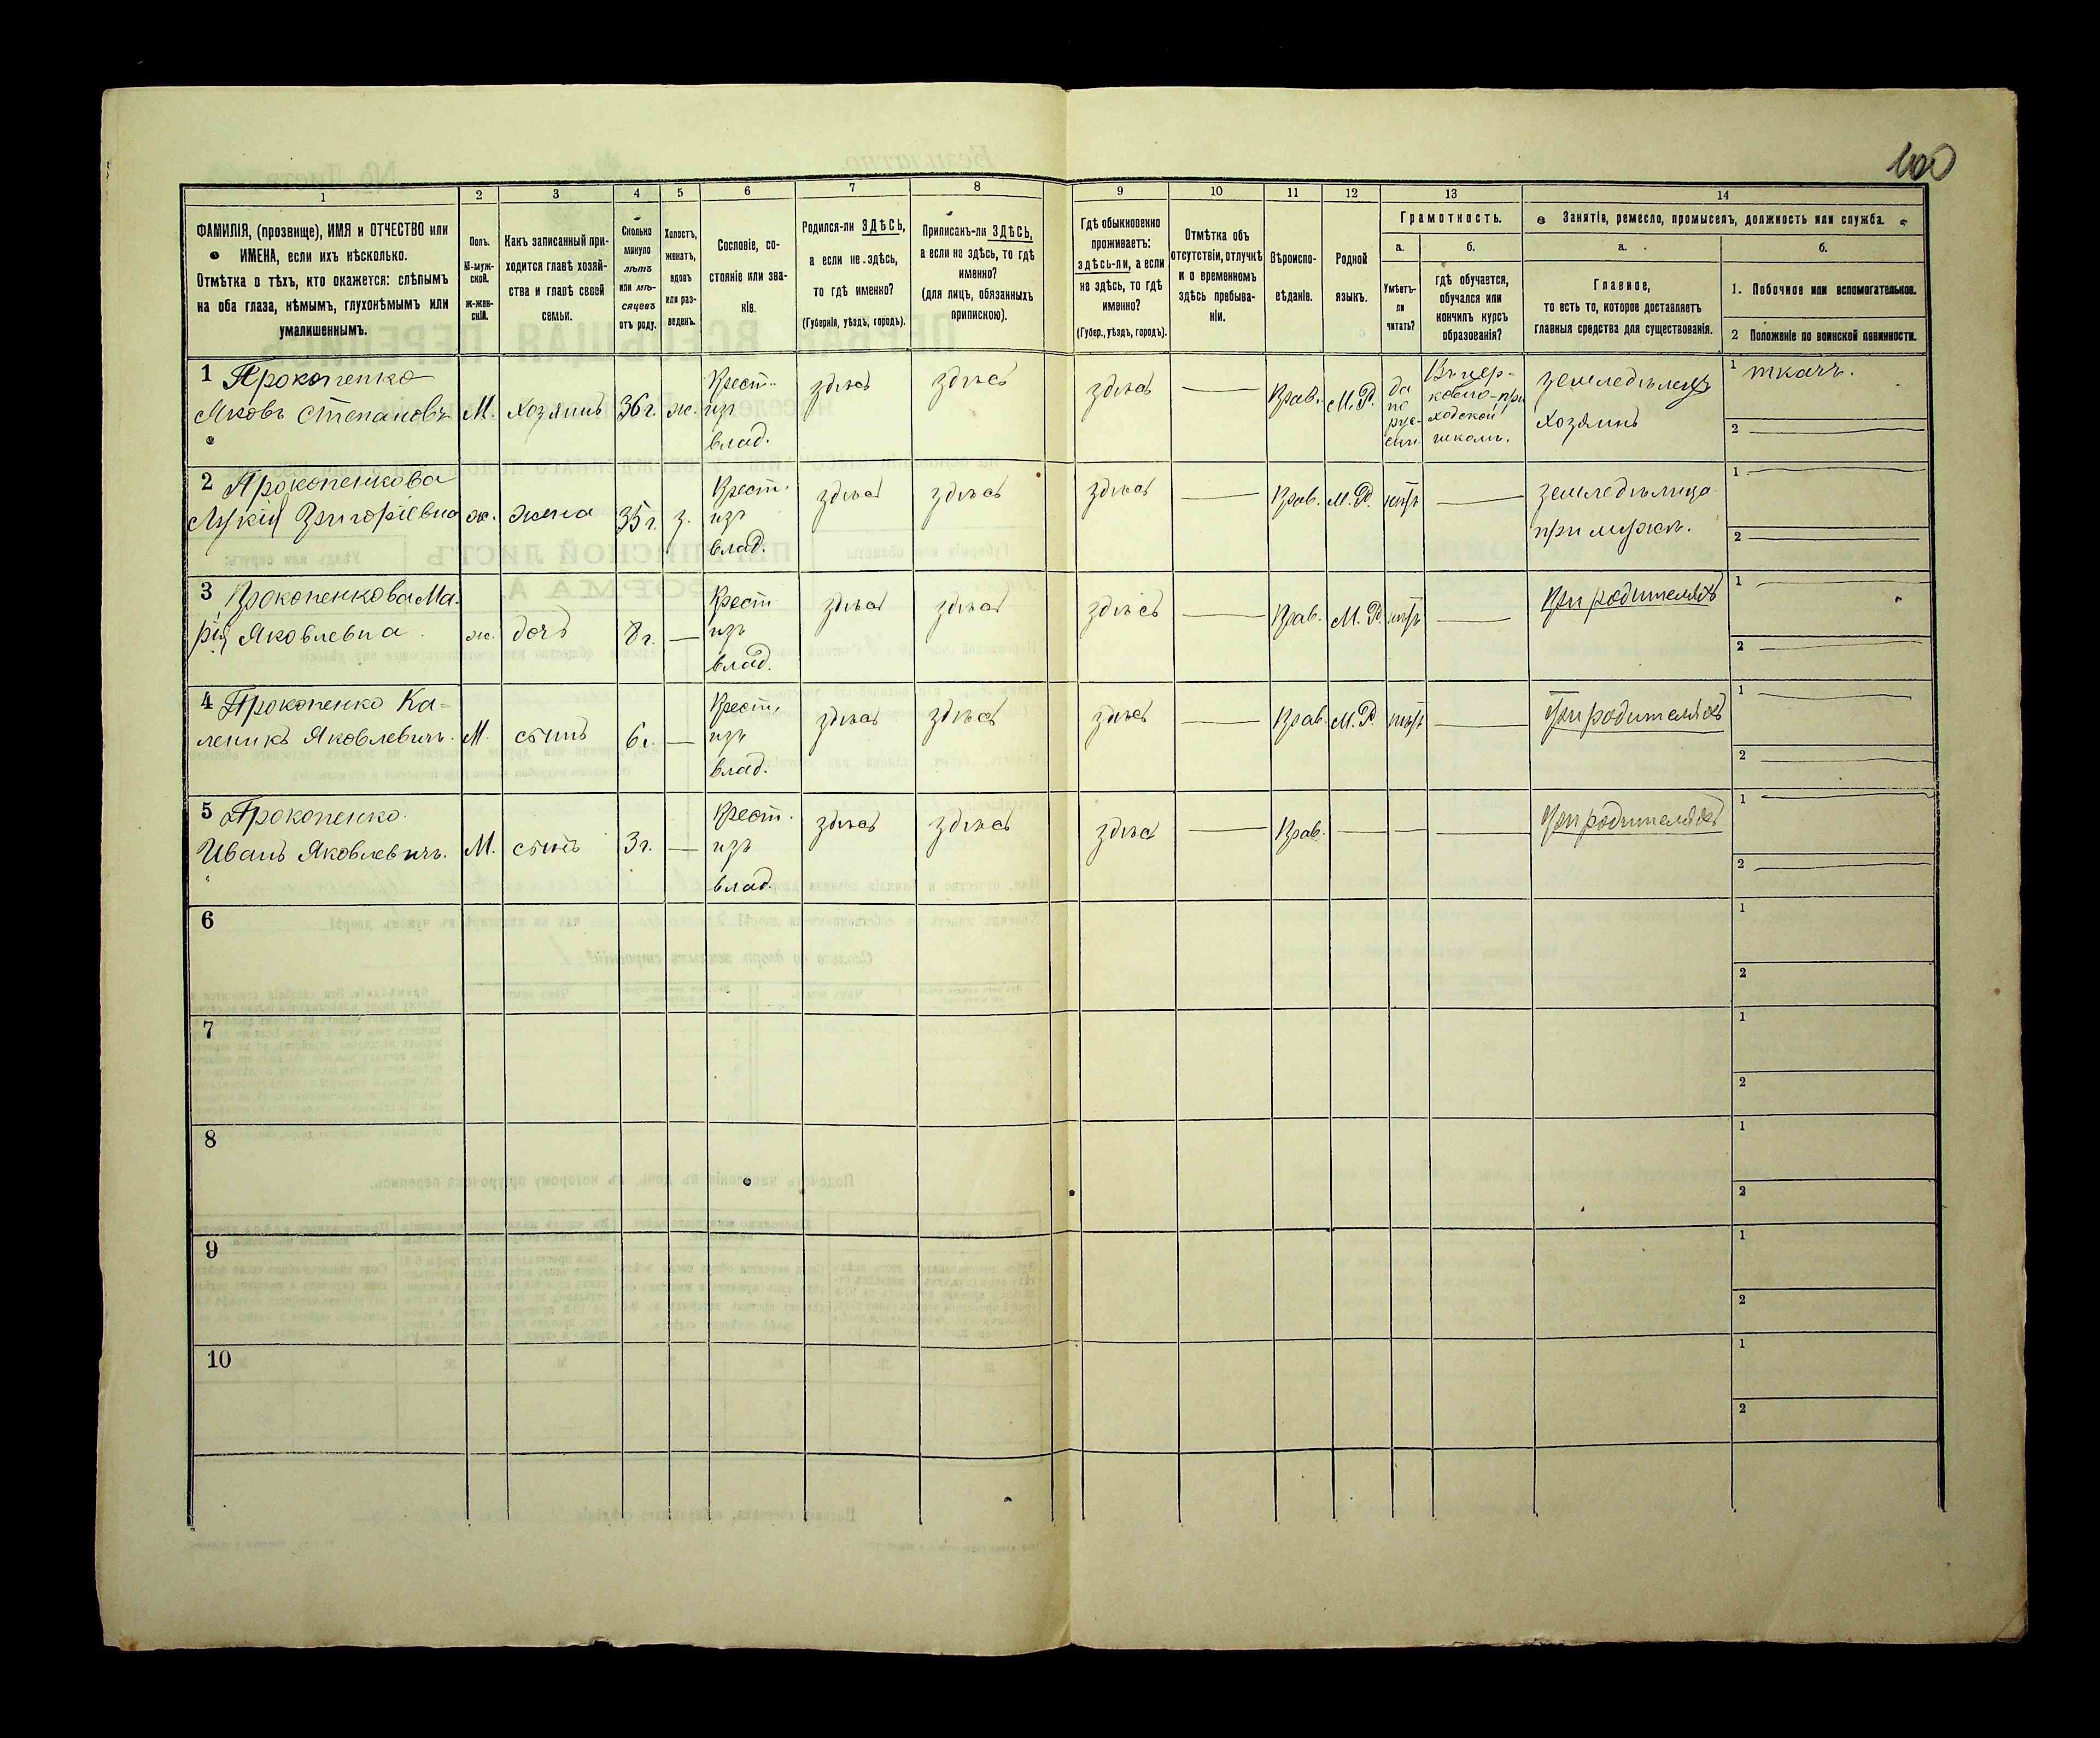 100
1
2
3
4
5
6
7
8
9
10
11
12
13
14
ФАМИЛІЯ, (прозвище), ИМЯ и ОТЧЕСТВО или
ИМЕНА, если ихъ нѣсколько.
Отмѣтка о тѣхъ, кто окажется: слѣпымъ
на оба глаза, нѣмымъ, глухонѣмымъ или
умалишеннымъ.
Полъ.
М-муж-
ской.
Ж-жен-
скій.
Какъ записанный при-
ходится главѣ хозяй-
ства и главѣ своей
семьи.
Сколько
минуло
лѣтъ
или мѣ-
сяцевъ
отъ роду.
Холостъ,
женатъ,
вдовъ
или раз-
веденъ.
Сословіе, со-
стояніе или зва-
ніе.
Родился-ли ЗДѢСЬ,
а если не здѣсь,
то гдѣ именно?
(Губернія, уѣздъ, городъ).
Приписанъ-ли ЗДѢСЬ,
а если не здѣсь, то гдѣ
именно?
(для лицъ, обязанныхъ
припискою).
Гдѣ обыкновенно
проживаетъ:
здѣсь-ли, а если
не здѣсь, то гдѣ
именно?
(Губер., уѣздъ, городъ).
Отмѣтка объ
отсутствіи, отлучкѣ
и о временномъ
здѣсь пребыва-
ніи.
Вѣроиспо-
вѣданіе.
Родной
языкъ.
Грамотность.
а.
Умѣетъ-
ли
читать?
б.
гдѣ обучается,
обучался или
кончилъ курсъ
образованія?
Занятіе, ремесло, промыселъ, должность или служба.
а.
Главное,
то есть то, которое доставляетъ
главныя средства для существованія.
б.
1. Побочное или вспомогательное.
2 Положеніе по воинской повинности.
1 Прокопенко
Яковъ Степановъ М. хозяинъ 36 г. ж. Крест. изъ влад. здѣсь здѣсь здѣсь — Прав. М.Р. да по рус- ски Въ цер- ковно-при ходской школѣ. земледѣлецъ хозяинъ
1 ткачъ.
2
2 Прокопенкова
Григоріевна ж. жена 35 г. з. Крест. изъ влад. здѣсь здѣсь здѣсь — Прав. М.Р. нѣтъ — земледѣлица при мужѣ.
1
2
3 Прокопенкова Ма-
рія Яковлевна ж. дочь 8 г. — Крест изъ влад. здѣсь здѣсь здѣсь — Прав. М.Р. нѣтъ — При родителяхъ
1
2
4 Прокопенко Ка-
леникъ Яковлевичъ. М. сынъ 6 г. — Крест. изъ влад. здѣсь здѣсь здѣсь — Прав. М.Р. нѣтъ — При родителяхъ
1
2
5 Прокопенко
Иванъ Яковлевичъ. М. сынъ 3 г. — Крест. изъ влад. здѣсь здѣсь здѣсь — Прав. — — — При родителяхъ
1
2
6
1
2
7
1
2
8
1
2
9
1
2
10
1
2